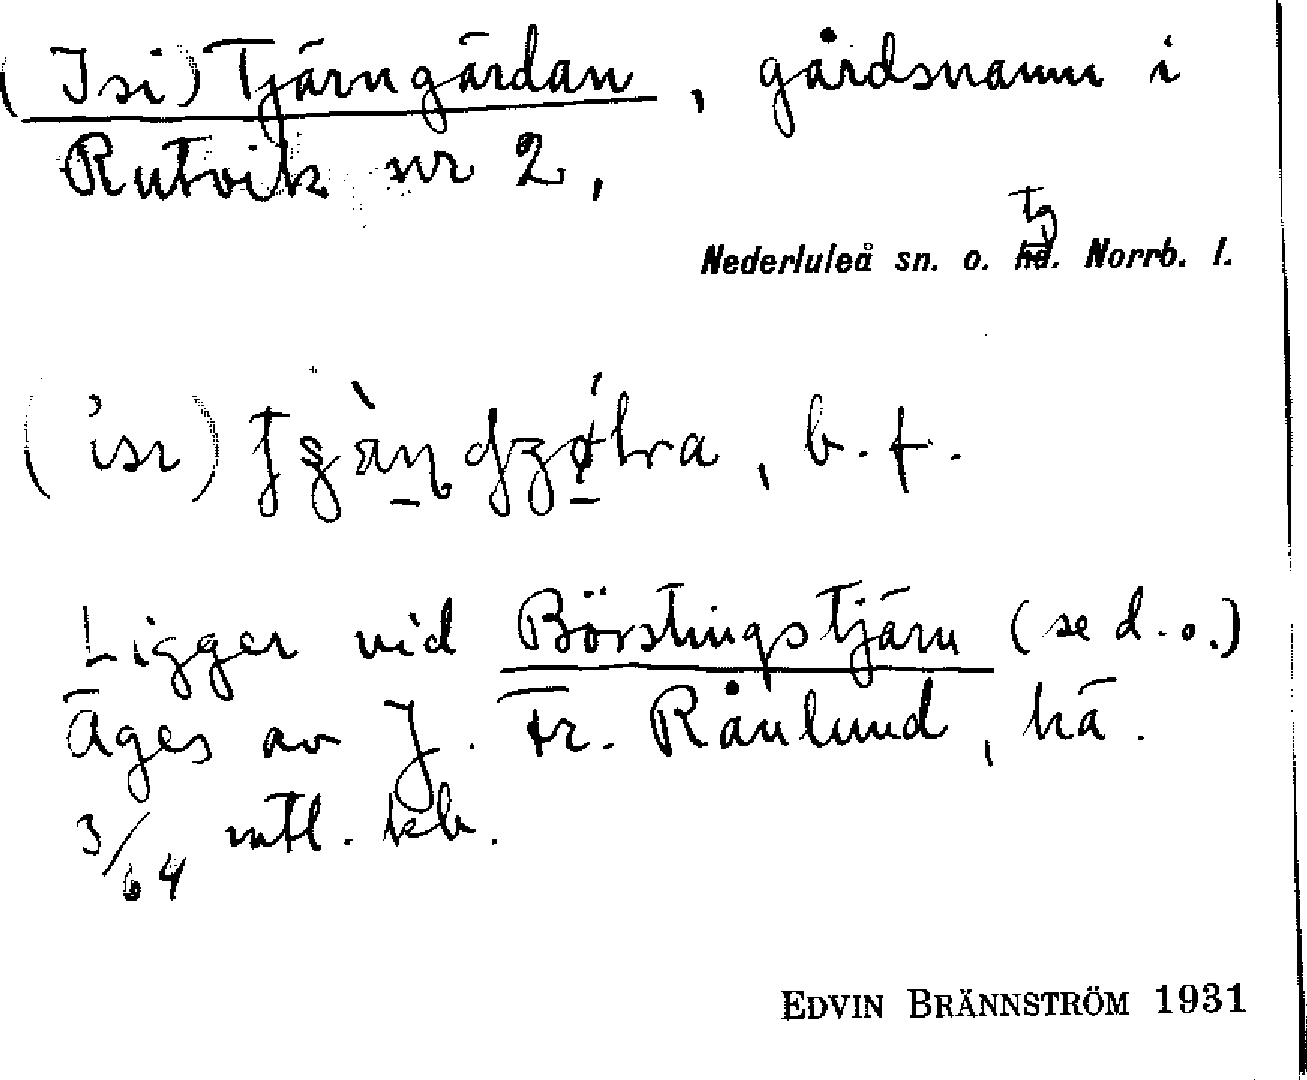 (Isi) Tjärngärdan, gårdsnamn i
Rutvik nr 2,
tg
Nederluleå sn. o. hd. Norrb. l.
b. f.
Ligger vid Börstingstjärn (se d.o.)
Äges av J. Fr. Rånlund, hä.
3/64 mtl. kb.
EDVIN BRÄNNSTRÖM 1931